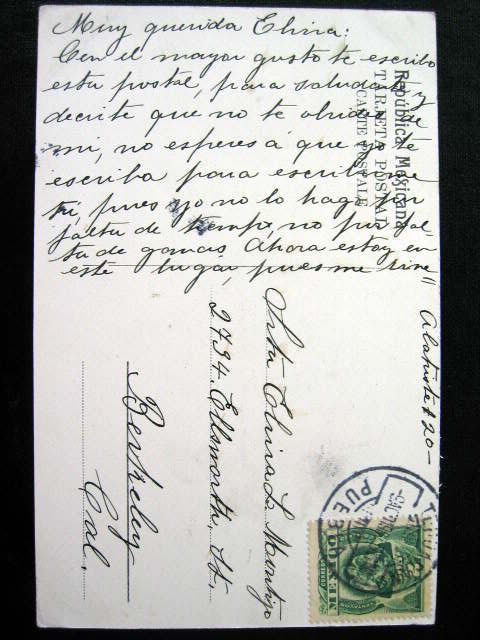 Muy querida Elvira:
Con el mayor gusto te escribo
esta postal, para saludarte y
decirte que no te olvides de
mi, no esperes á que yo te
escriba para escribirme
tú, pues yo no lo hago por
falta de tiempo, no por fal
ta de ganas. Ahora estoy en
este lugar, pues me vine
República Mexicana
TARJETA POSTAL
CARTE POSTALE
Alatriste # 20-
Srta Elvira L. Montijo
2794. Ellsworth. St.
Berkeley
Cal.
PUEB